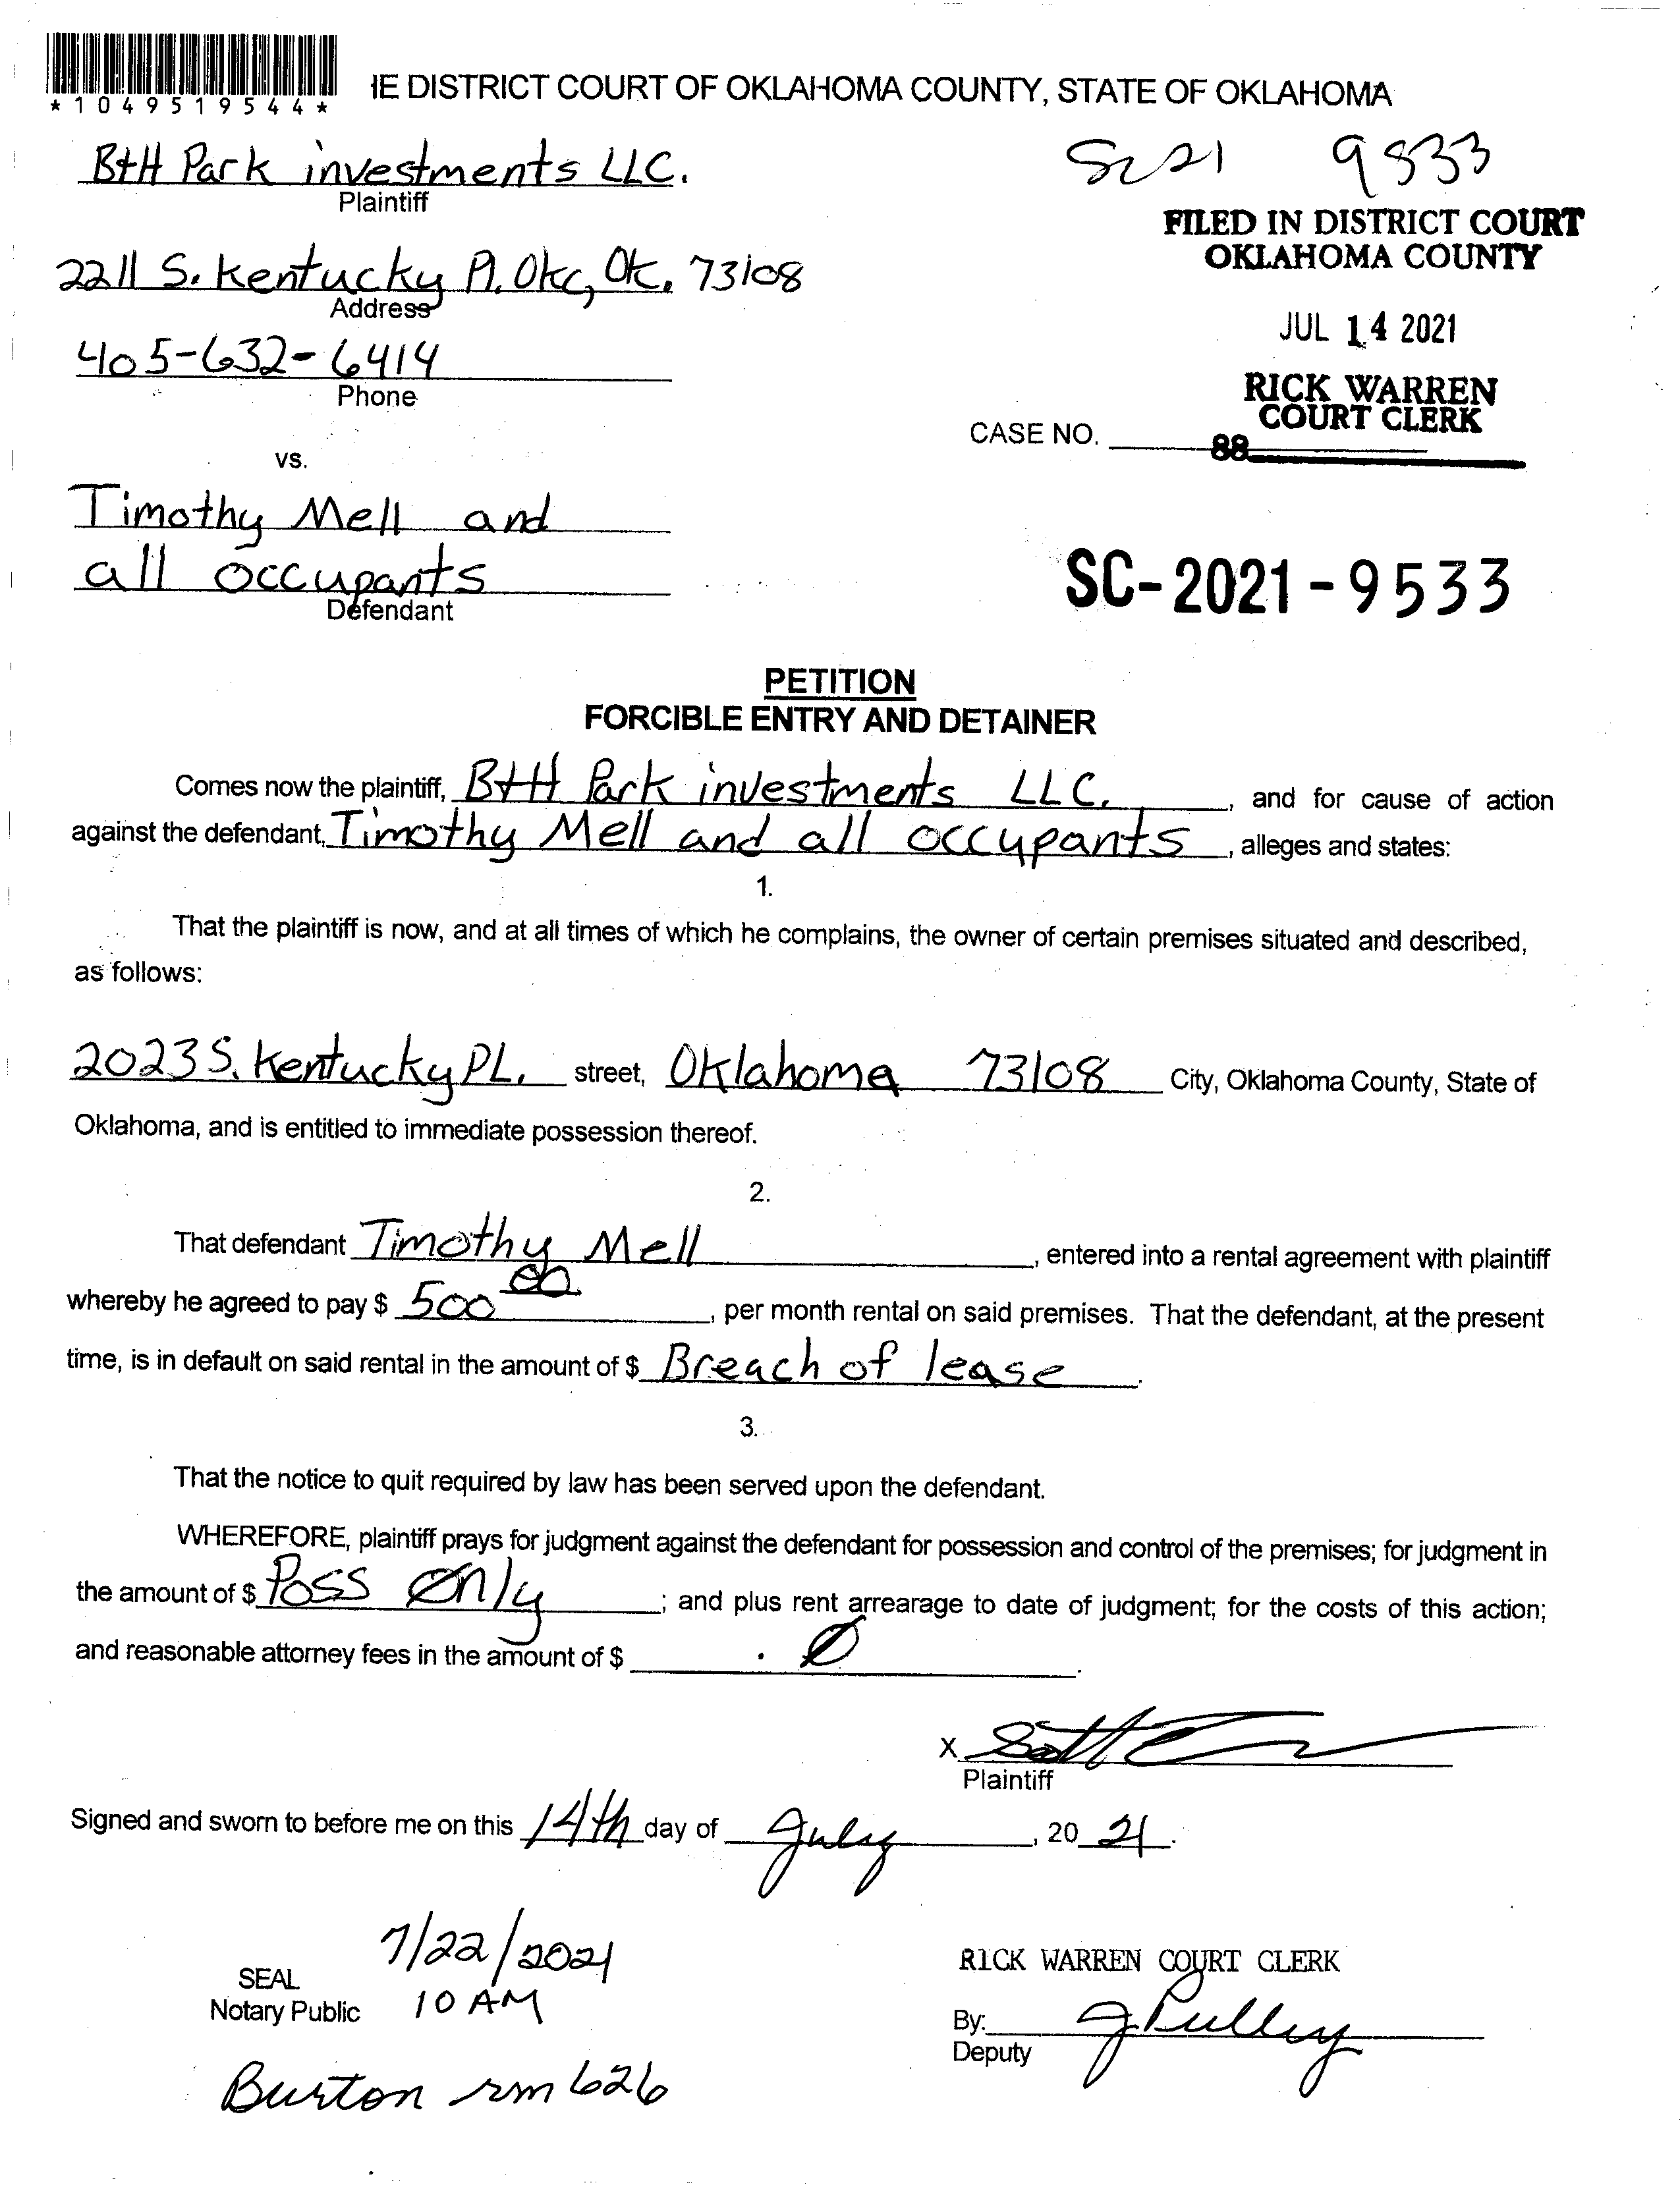 *1049519544*
IE DISTRICT COURT OF OKLAHOMA COUNTY, STATE OF OKLAHOMA
B+H Park investments LLC.
Plaintiff
SC21 9533
FILED IN DISTRICT COURT
OKLAHOMA COUNTY
2211 S. Kentucky Pl. Okc, Ok. 73108
Address
JUL 14 2021
405-632-6414
Phone
RICK WARREN
COURT CLERK
CASE NO.
88
vs.
Timothy Mell and
all occupants
Defendant
SC-2021-9533
PETITION
FORCIBLE ENTRY AND DETAINER
Comes now the plaintiff, B+H Park investments LLC. , and for cause of action
against the defendant, Timothy Mell and all occupants , alleges and states:
1.
That the plaintiff is now, and at all times of which he complains, the owner of certain premises situated and described,
as follows:
2023 S. Kentucky PL. street, Oklahoma 73108 City, Oklahoma County, State of
Oklahoma, and is entitled to immediate possession thereof.
2.
That defendant Timothy Mell , entered into a rental agreement with plaintiff
whereby he agreed to pay $ 500 00 , per month rental on said premises. That the defendant, at the present
time, is in default on said rental in the amount of $ Breach of lease .
3.
That the notice to quit required by law has been served upon the defendant.
WHEREFORE, plaintiff prays for judgment against the defendant for possession and control of the premises; for judgment in
the amount of $ Poss Only ; and plus rent arrearage to date of judgment; for the costs of this action;
and reasonable attorney fees in the amount of $ . Ø .
X
Plaintiff
Signed and sworn to before me on this 14th day of July , 20 21 .
7/22/2021
10 AM
SEAL
Notary Public
RICK WARREN COURT CLERK
By: J Pulley
Deputy
Burton rm 626